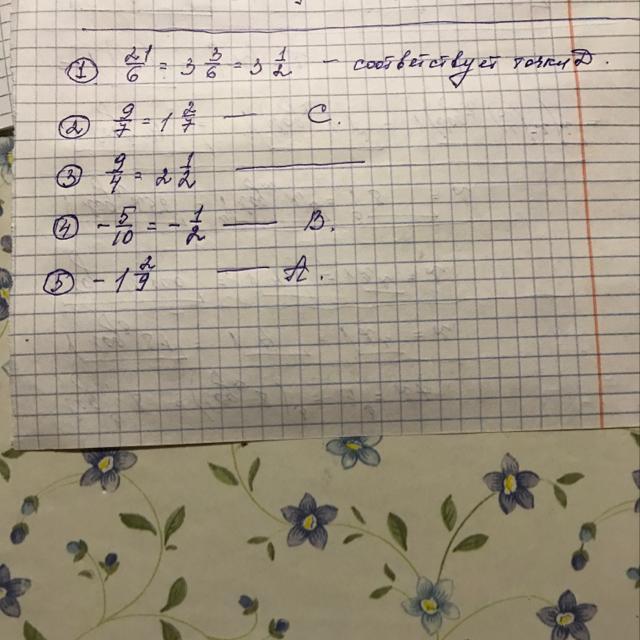 ① 21/6 = 3 3/6 = 3 1/2 — соответствует точки D.
② 9/7 = 1 2/7 — C.
③ 9/4 = 2 1/2 —
④ -5/10 = -1/2 — B.
⑤ -1 2/9 — A.